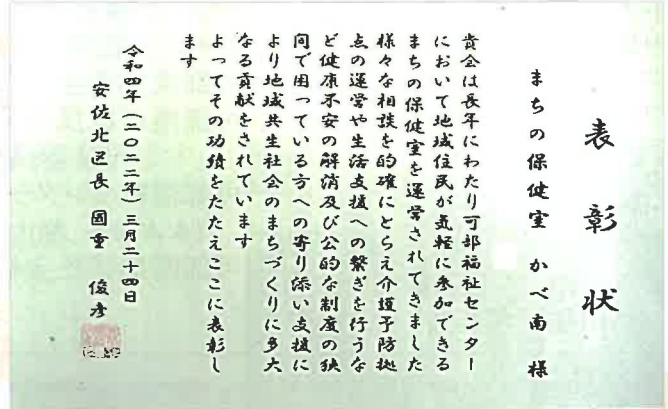 表彰状
まちの保健室 かべ南 様
貴会は長年にわたり可部福祉センター
において地域住民が気軽に参加できる
まちの保健室を運営されてきました
様々な相談を的確にとらえ介護予防拠
点の運営や生活支援への繋ぎを行うな
ど健康不安の解消及び公的な制度の狭
間で困っている方への寄り添い支援に
より地域共生社会のまちづくりに多大
なる貢献をされています
よってその功績をたたえここに表彰し
ます
令和四年（二〇二二年）三月二十四日
安佐北区長 國重 俊彦